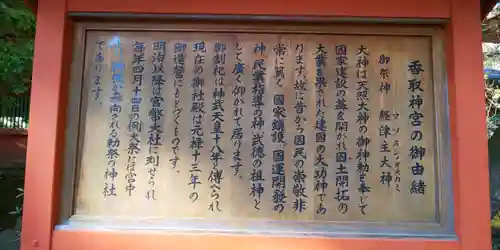 香取神宮の御由緒
フツヌシノオオカミ
御祭神 経津主大神
大神は天照大神の御神勅を奉じて
国家建設の基を開かれ国土開拓の
大業を果された建国の大功神であ
ります。故に昔から国民の崇敬非
常に篤く、国家鎮護、国運開発の
神、民業指導の神、武徳の祖神と
して広く仰がれて居ります。
御創祀は神武天皇十八年と傳えられ
現在の御社殿は元禄十三年の
御造営にもとづくものです。
明治以降は官幣大社に列せられ
毎年四月十四日の例大祭には宮中
より御使が参向される勅祭の神社
であります。